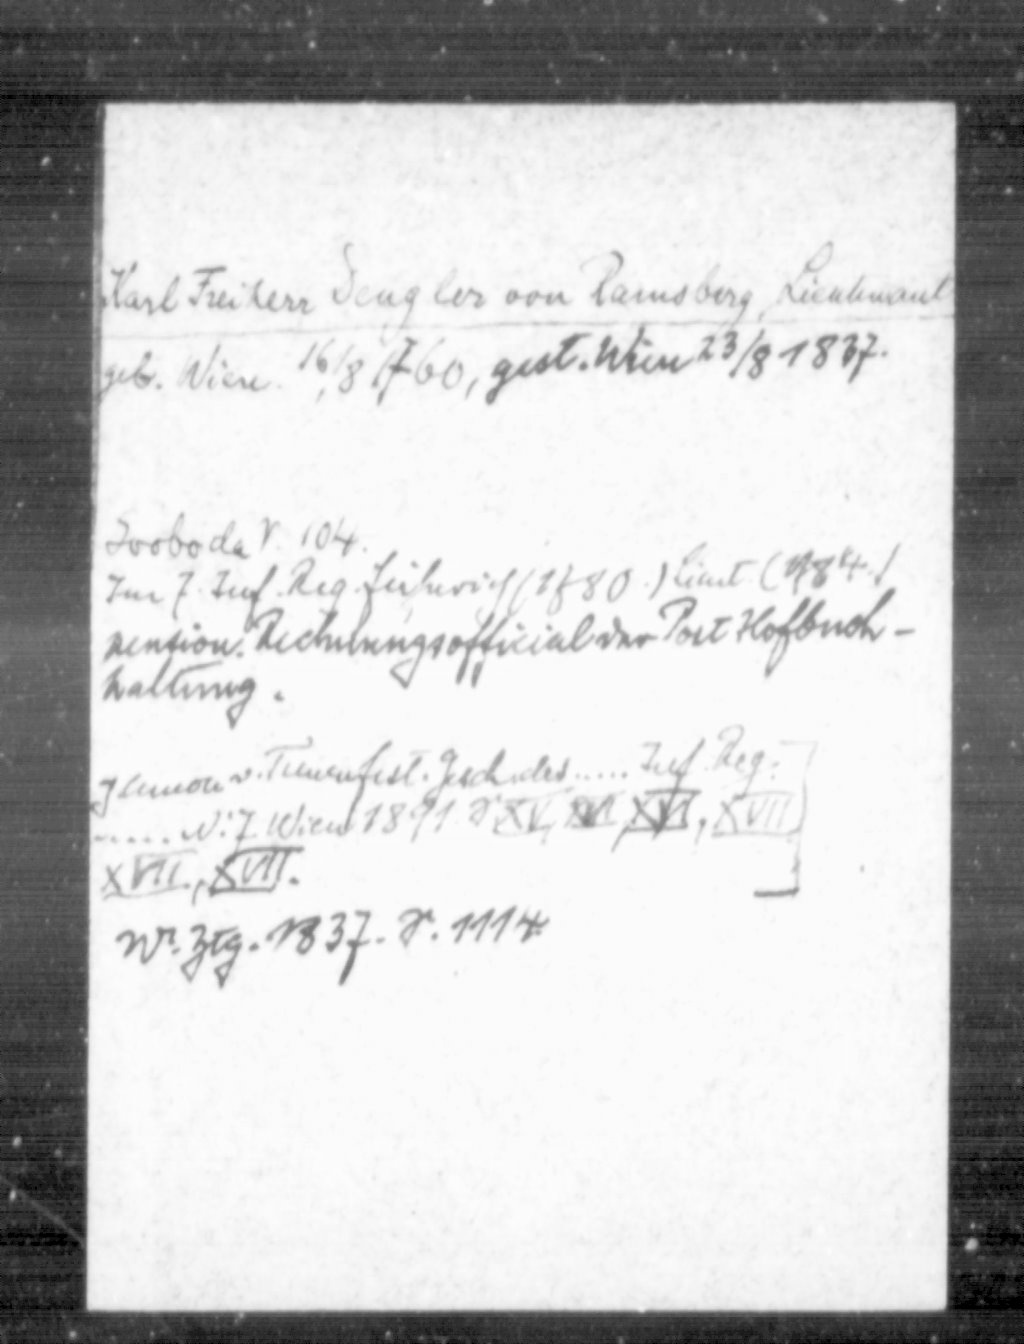 Karl Freiherr Dengler von Ramsberg, Lieutenant
geb. Wien 16/8 1760, gest. Wien 23/8 1837.
Svoboda V. 104.
Im 7. Inf. Reg. Fähnrich (1780.) Lieut. (1784.)
pension. Rechnungsofficial der Post Hofbuch-
haltung.
v. Treuenfest. Gesch. des ..... Inf. Reg.
..... N: 7 Wien 1891 XV, XVI, XVII
XVII., XVII.
Wr. Ztg. 1837. S. 1114